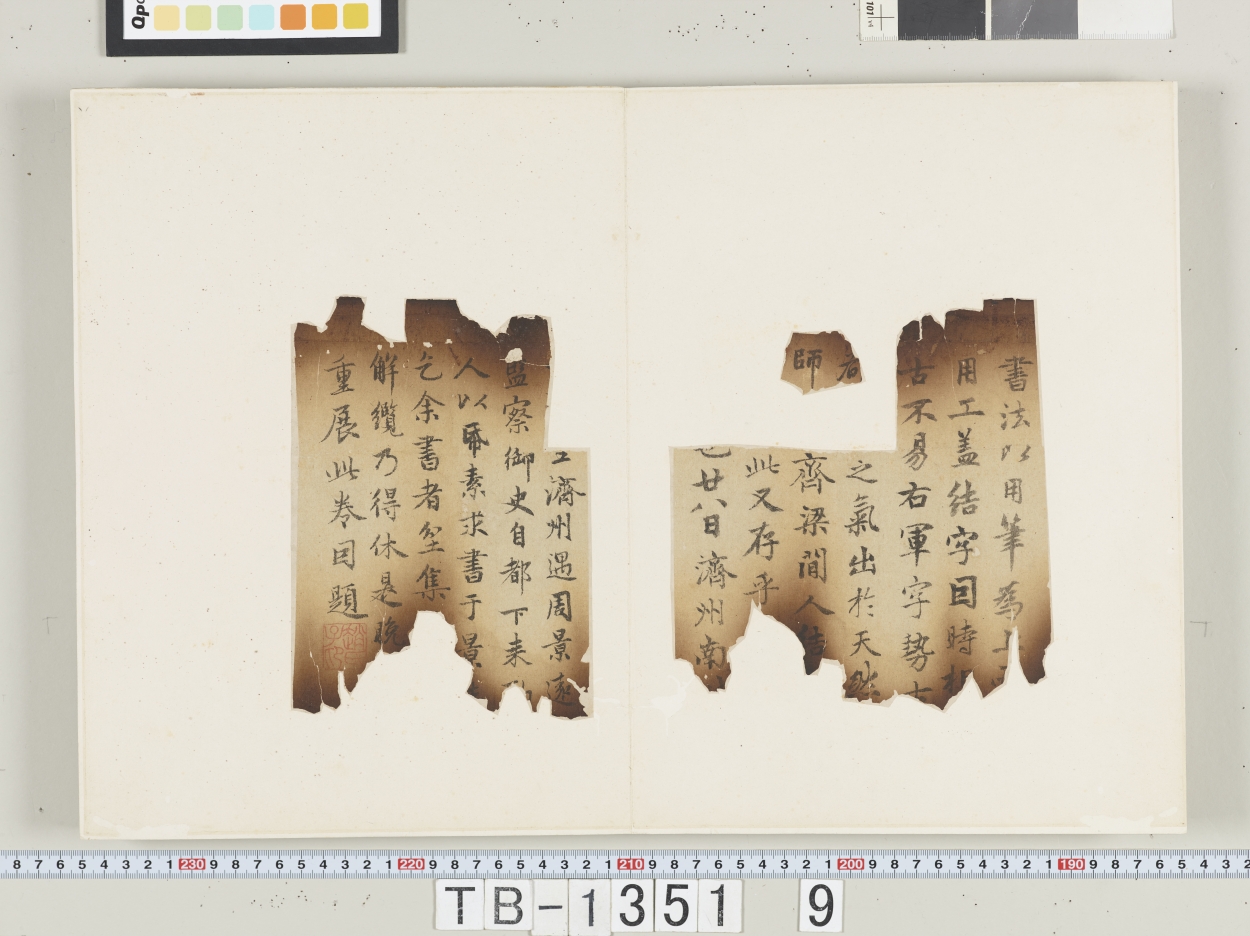 書法以用筆為上
用工盖结字因時相
古不易右軍字勢古
之氣出於天
者
齊梁間人结
師
此又存乎
廿八日濟州南
濟州遇周景遠
監察御史自都下来
人以紙素求書于景
乞余書者坌集
解纜乃得休是晚
重展此卷因題
8 7 6 5 4 3 2 1 230 9 8 7 6 5 4 3 2 1 220 9 8 7 6 5 4 3 2 1 210 9 8 7 6 5 4 3 2 1 200 9 8 7 6 5 4 3 2 1 190 9 8 7 6 5 4 3 2
TB-1351 9